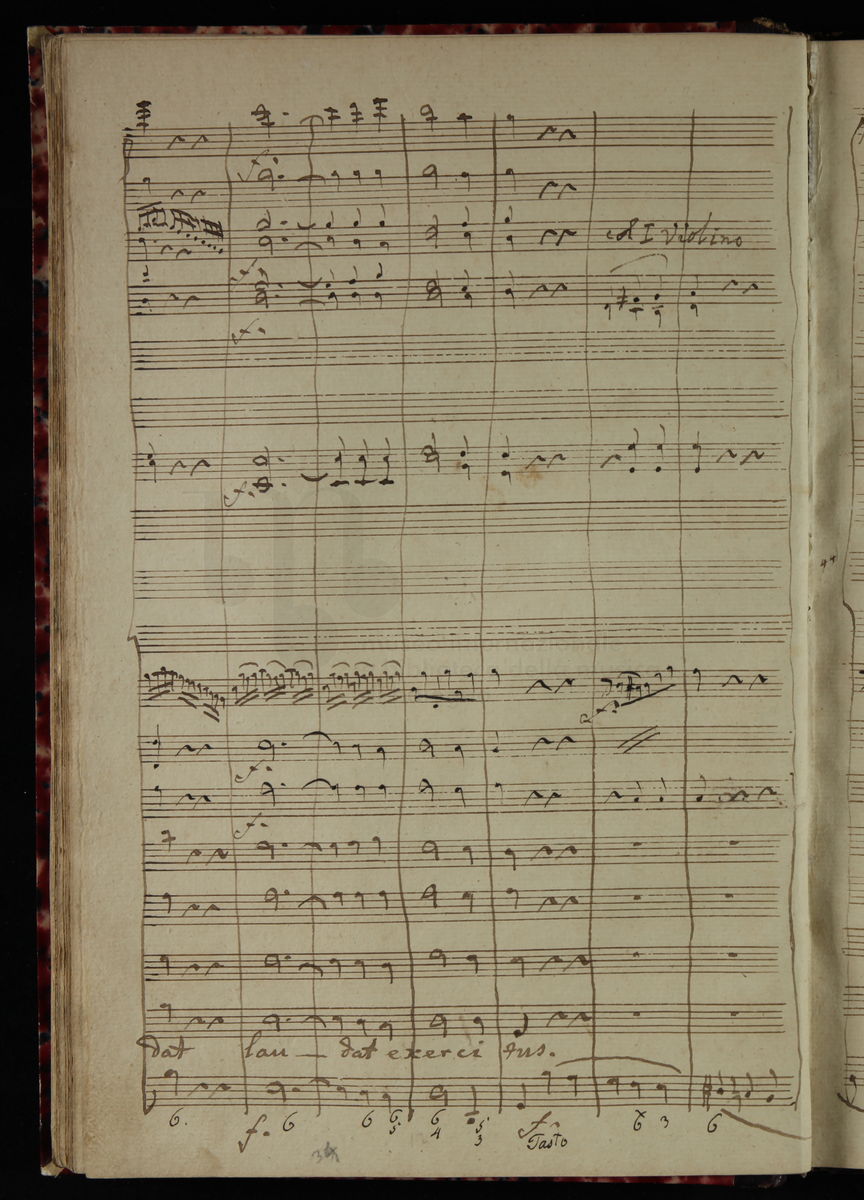 f.
col I Violino
f.
f.
f.
f.
f.
dat lau — dat exerci tus.
6. 6 6 6 6 5 f. 6 3 6
f. 5. 4 3 Tasto
34